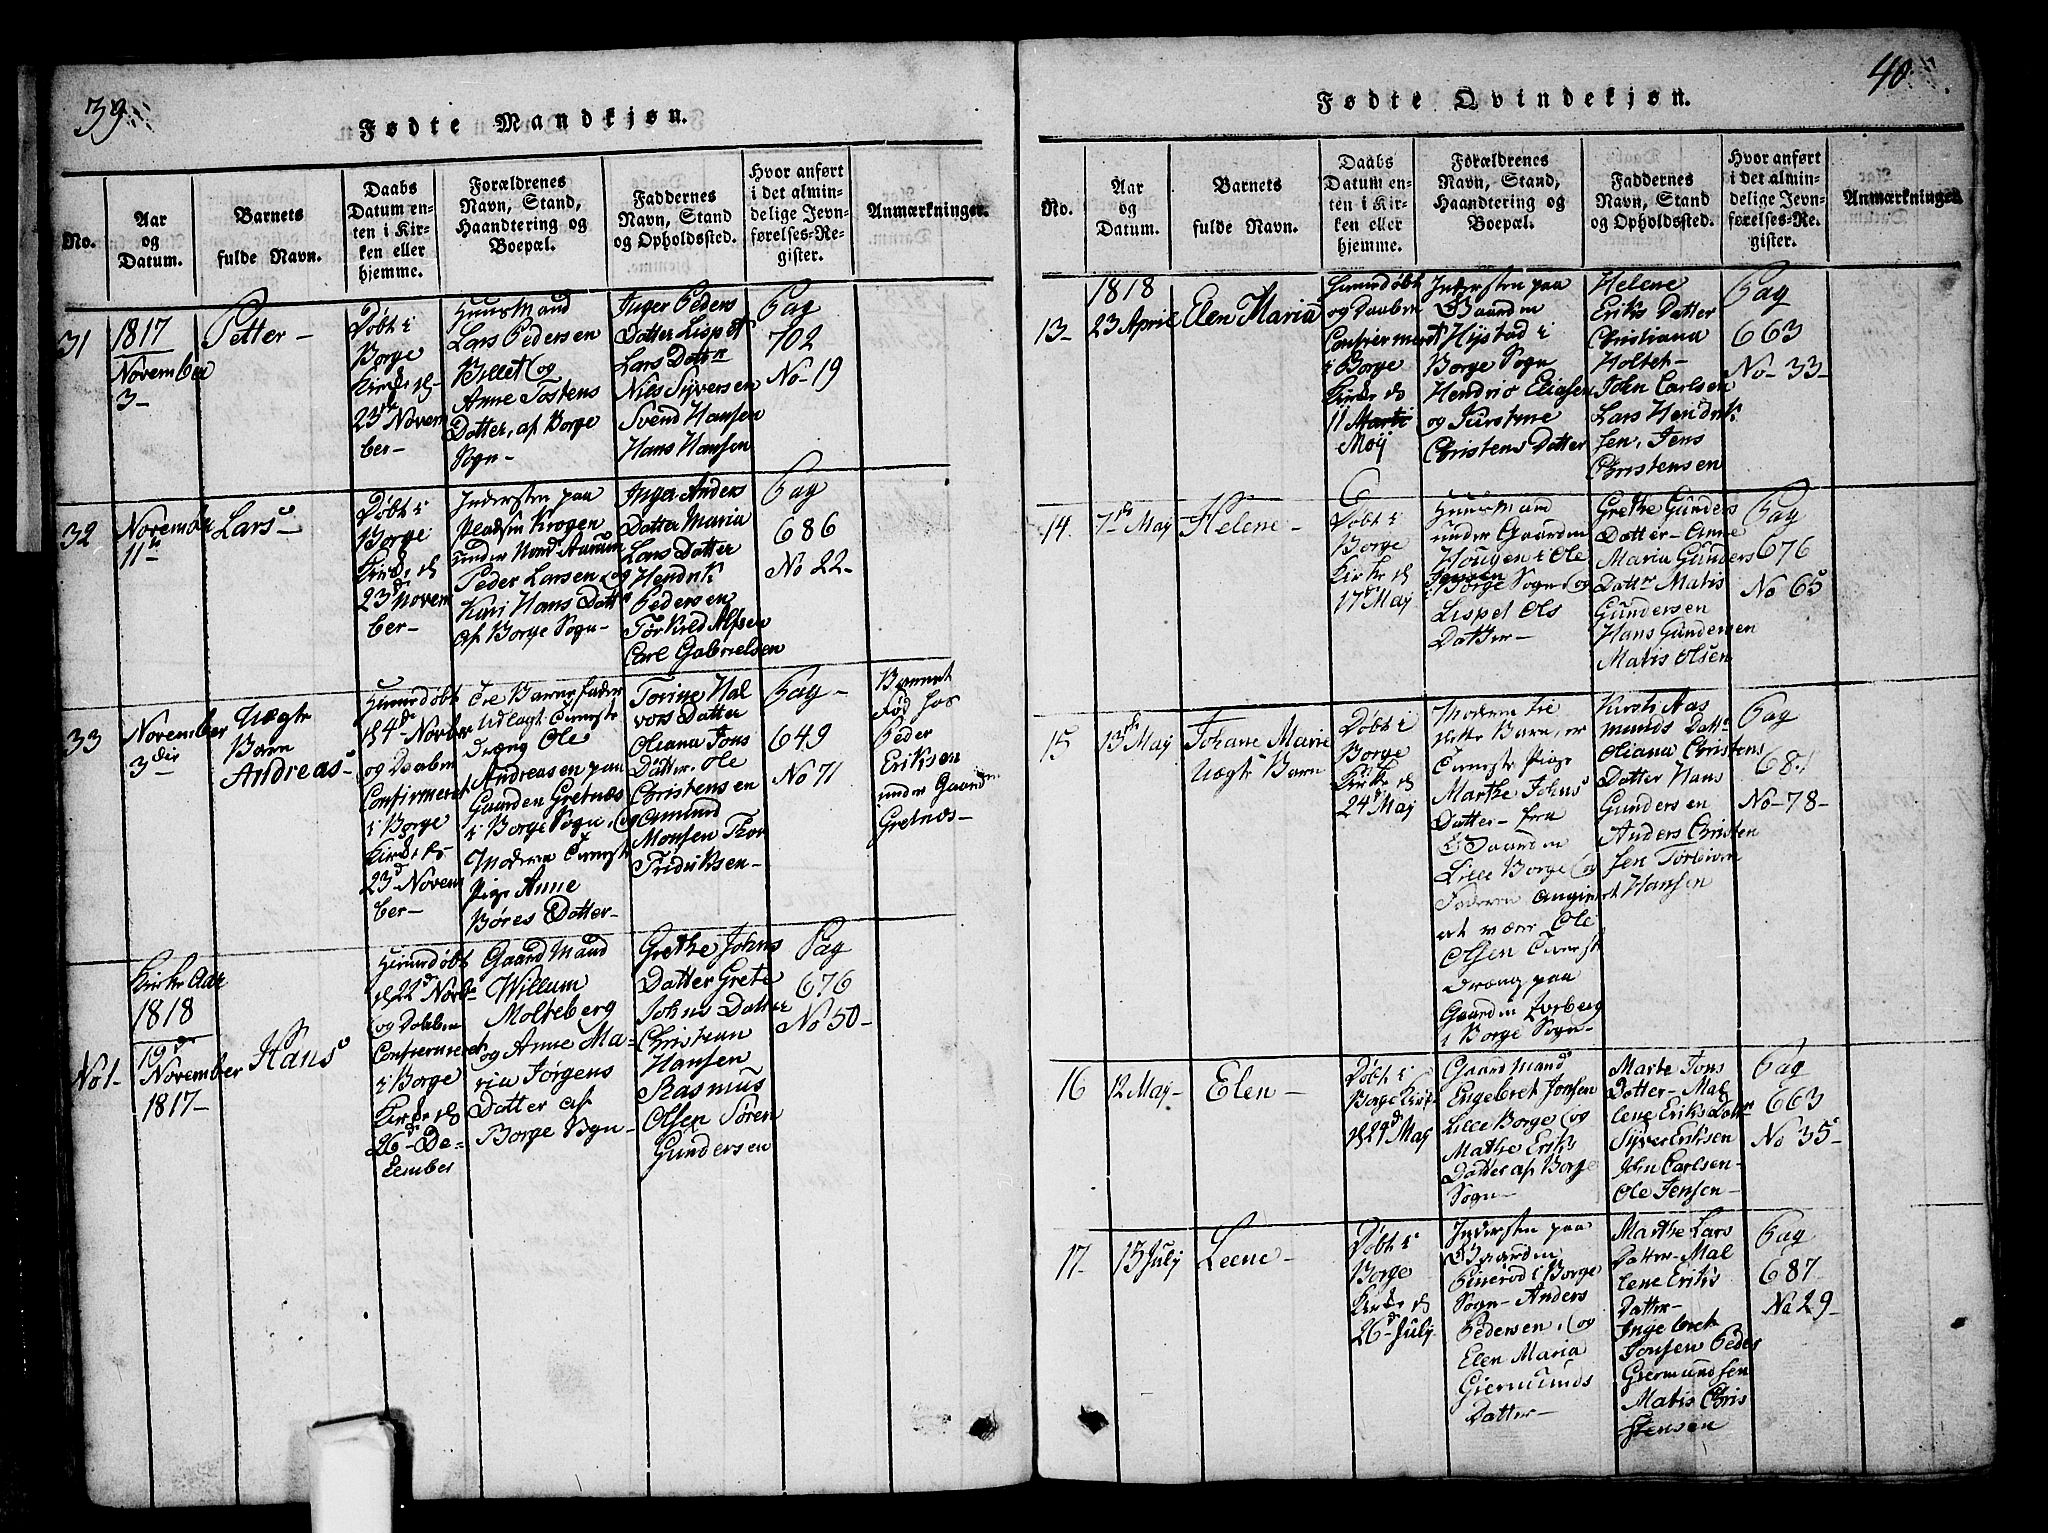 39
Fødte Mandkjøn.
No.
Aar
og
Datum.
Barnets
fulde Navn.
Daabs
Datum en-
ten i Kir-
ken eller
hjemme.
Forældrenes
Navn, Stand,
Haandtering og
Boepæl.
Faddernes
Navn, Stand
og Opholdssted.
Hvor anført
i det almin-
delige Jevn-
førelses-Re-
gister.
Anmærkninger.
31
1817
November
3-
Petter-
Døbt i
Borge
Kirke d
23 Novem
ber-
Huusmand
Lars Pedersen
Anne Tostens
Datter, af Borge
Sogn-
Inger Peders
Datter Lispet
Lars Datter
Nils Syversen
Svend Hansen
Hans Hansen
Pag
702
No-19
32
November
11te
Lars
Døbt i
Borge
Kirke d
23 Novem
ber-
Inderster paa
Pladsen Krogen
under Nord Aarum
Peder Larsen og
Kari Hans Dattr
af Borge Sogn-
Inger Anders
Datter Maria
Lars Datter
Hendrik
Pedersen
Torkild Alfsen
Carl Gabrielsen
Pag
686
No 22-
33
November
3die
Uægte
Barn
Andreas
Hiemdøbt
d 4de Novber
og Daaben
Confirmeret
i Borge
Kirke d
23d Novem
ber-
Tre Barnefader
Udlagt Tieneste
dreng Ole
Andreasen paa
Gaarden Gretnæs
i Borge Sogn, og
Moderen Tieneste
Pige Anne
Børes Datter-
Torine Hal
vors Datter
Oliana Jons
Datter. Ole
Christensen
Amund
Monsen Thor
Fridriksen-
Pag-
649
No 71
Barnet
Fød hos
Peder
Eriksen
under Gaarden
Gretnæs-
Kirke Aar
1818
No 1-
19de
November
1817-
Hans
Hiemdøbt
d 22d Novbr
og Dobben
Confirmeret
i Borge
Kirke d
26d De-
cember
Gaardmand
Willum
Molteberg
og Anne Ma-
ria Jørgens
Datter af
Borge Sogn-
Grethe Johns
Datter Grete
Johns Datter
Christian
Hansen
Rasmus
Olsen Søren
Gundersen
Pag
676
No 50-
40
Fødte Qvindekjøn.
No.
Aar
og
Datum.
Barnets
fulde Navn.
Daabs
Datum en-
ten i Kir-
ken eller
hjemme.
Forældrenes
Navn, Stand,
Haandtering og
Boepæl.
Faddernes
Navn, Stand
og Opholdssted.
Hvor anført
i det almin-
delige Jevn-
førelses-Re-
gister.
Anmærkninger.
13-
1818
23 April
Elen Maria
Hiemdøbt
og Daaben
Confirmeret
i Borge
Kirke d
11 Marti
Maij
Indersten paa
Gaarden
Hystad i
Borge Sogn
Hendric Eliasen
og Kirstine
Christens Datter
Helene
Eriks Datter
Christiana
Holteh-
John Carlsen
Lars Hendrik
sen, Jens
Christensen
Pag
663
No-33-
14
7de Maj
Helene-
Døbt i
Borge
Kirke d
17 Maj
Huusmand
under Gaarden
Hougen i Ole
Jensen
Borge Sogn og
Lispet Ols
Datter-
Grethe Gunders
Datter- Anne
Maria Gunders
Dattr Matis
Gundersen
Hans Gundersen
Matis Olsen
Pag
676
No 65
15
13de Maj
Johane Marie
Uægte Barn
Døbt i
Borge
Kirke d
24 Maj
Moderen tre
dette Barn, er
Tieneste Pige
Marthe Johns
Datter- fra
Gaarden
Lille Borge og
Faderen angivet
at være Ole
Olsen Tieneste
Dreng paa
Gaarden Torberg
i Borge Sogn-
Kirsti Aas
munds Datt
Oliana Christens
Datter Hans
Gundersen
Anders Christen
sen Torbiørn
Hansen
Pag
681
No-78-
16
12 Maj-
Elen-
Døbt i
Borge Kirke
d 24d Maj
Gaardmand
Engebret Jonsen
Lille Borge og
Mathe Eriks
Datter af Borge
Sogn-
Marte Jons
Datter- Mal
lene Eriks Dattr
Syver Eriksen
John Carlsen-
Ole Jensen-
Pag
663
No 35-
17
13 July
Leene-
Døbt i
Borge
Kirke d
26d July
Indersten paa
Gaarden
i Borge
Sogn- Anders
Pedersen, og
Elen Maria
Giermunds
Datter-
Marthe Lars
Datter- Mal
lene Eriks
Datter-
Ingebret
Jonsen Peder
Giermundsen
Matis Chris
stensen
Pag
687
No 29-